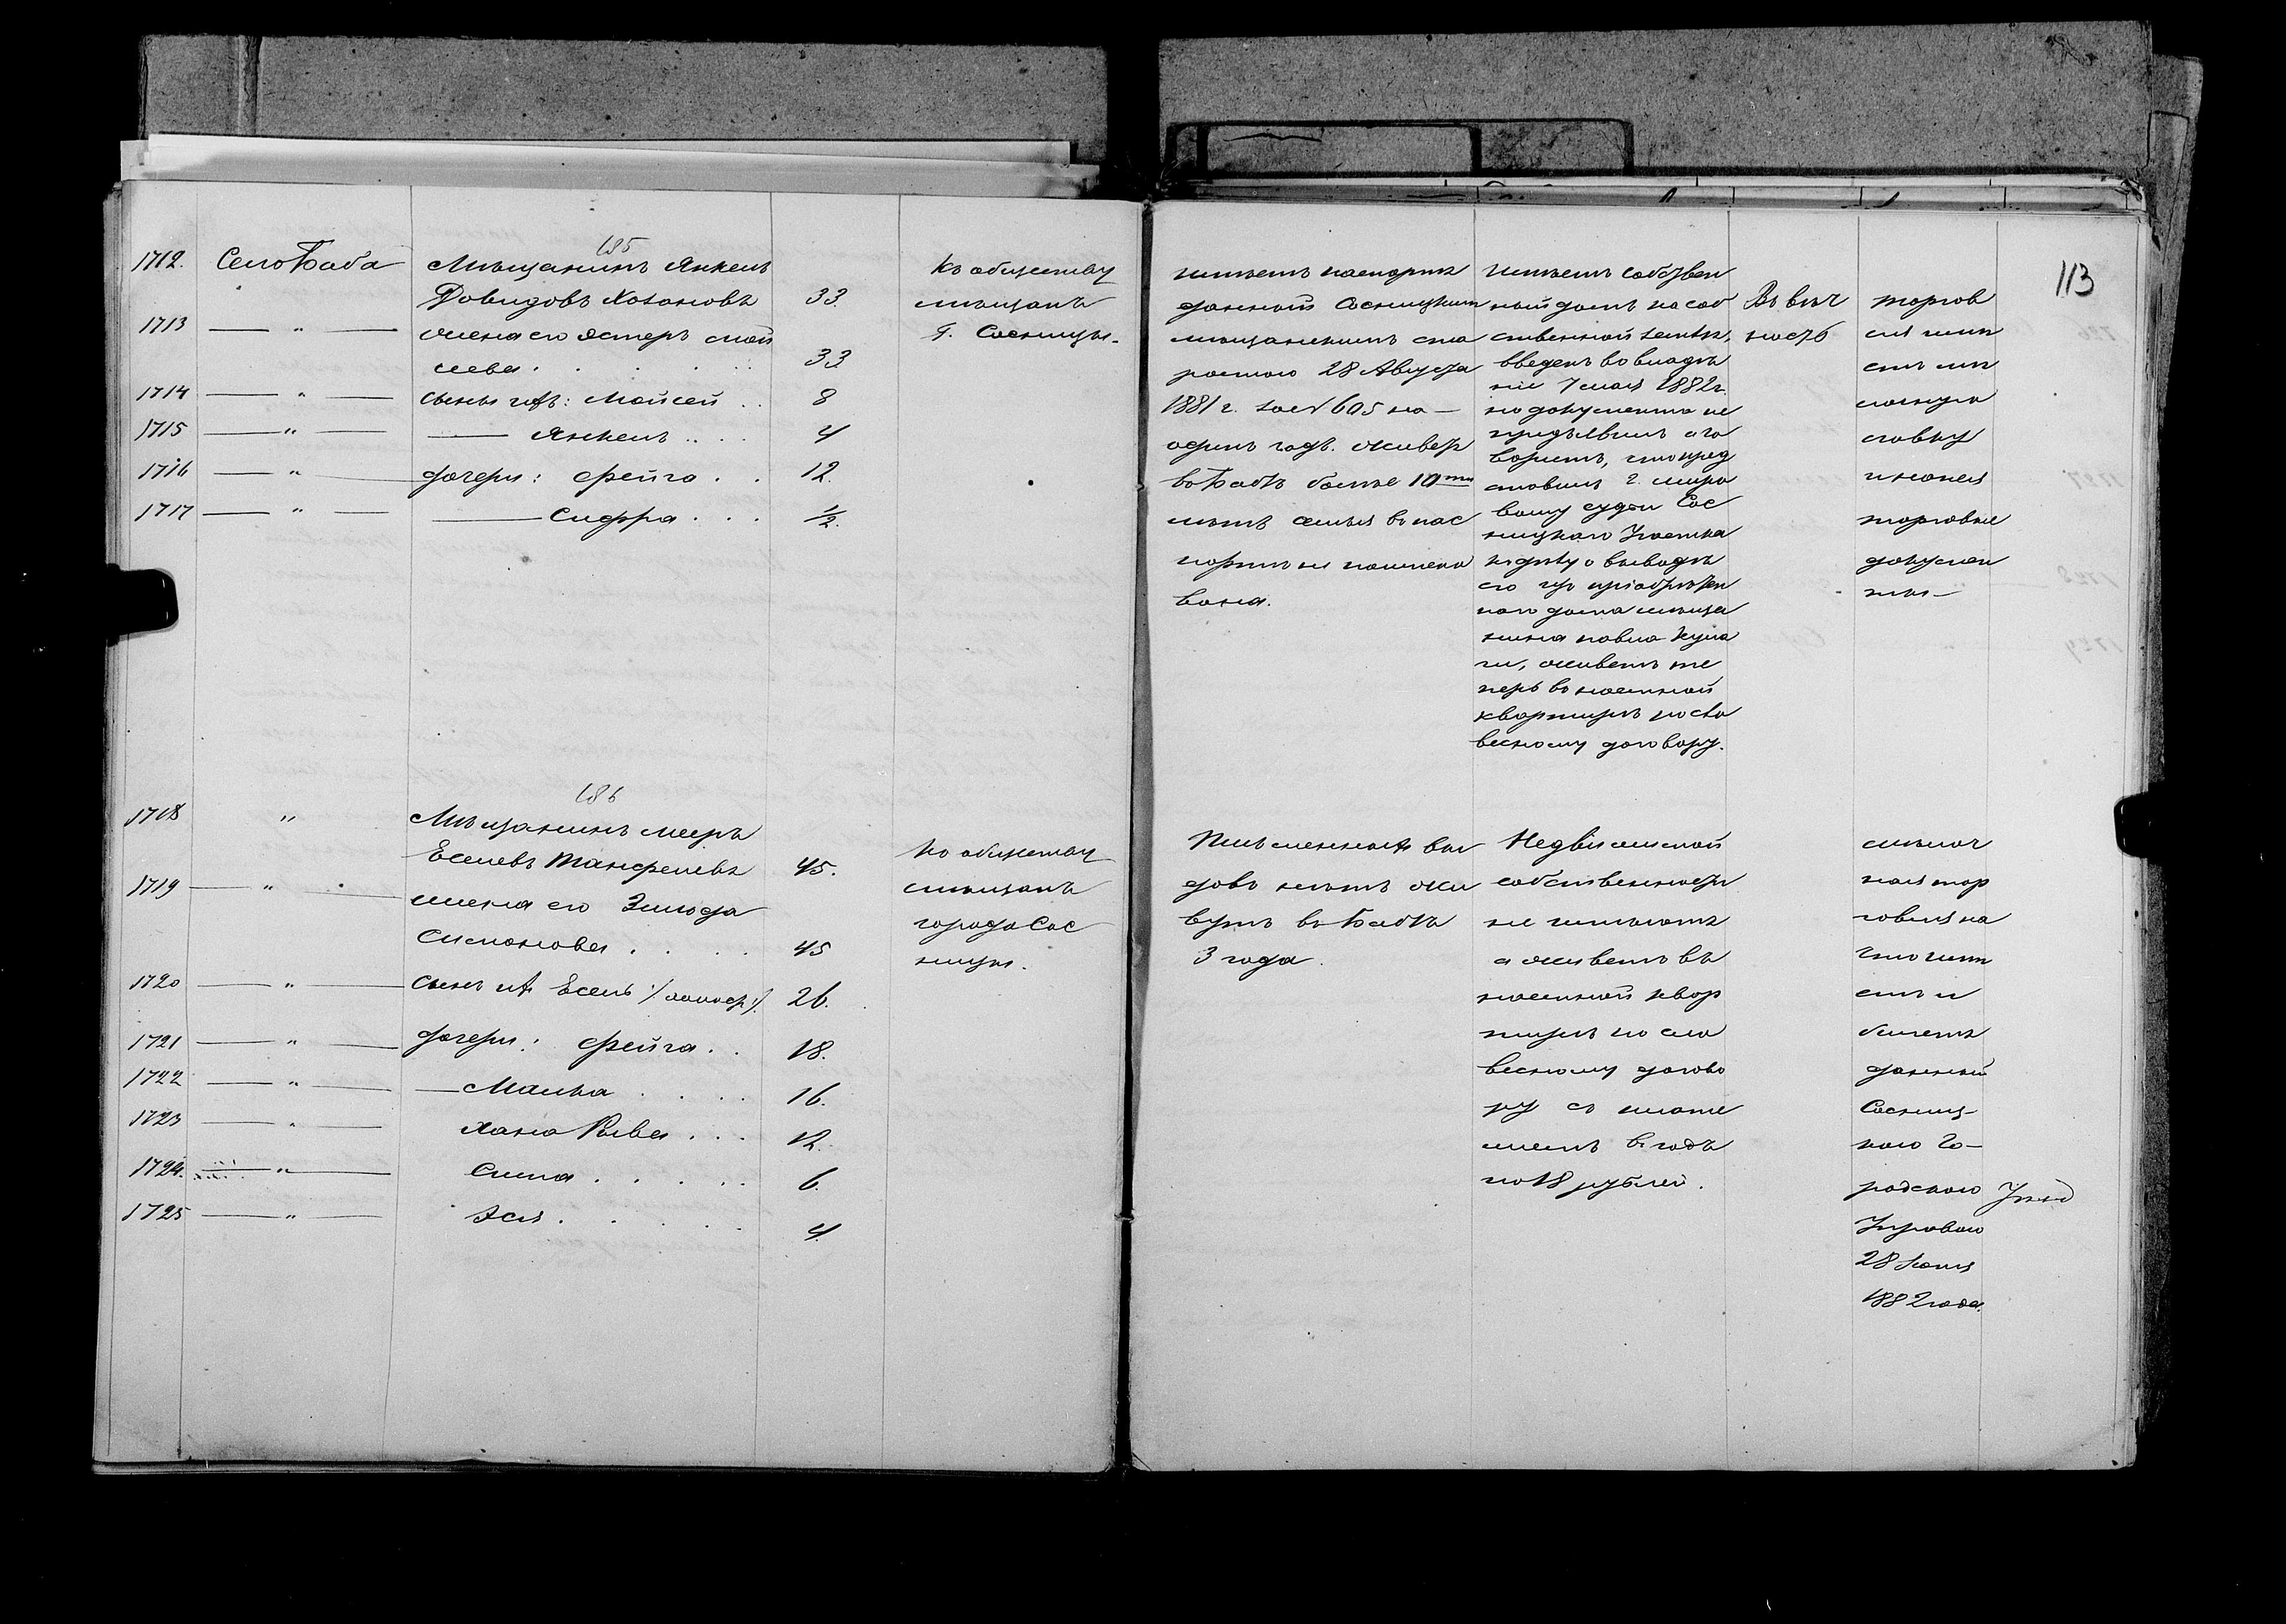 113
185
1712. Село Баба Мѣщанинъ Янкель
Довидовъ Хазановъ 33.
1713 — " — жена его Эстеръ Мой
сеева . . . . 33
1714 — " — сынъ ихъ: Мойсей . . 8
1715 — " — — Янкель . . . 4
1716 — " — дочери: Фейга . . 12.
1717 — " — — Сифра . . . ½.
Къ обществу
мѣщанъ
г. Сосницы.
имѣетъ паспортъ
данный Сосницкимъ
мѣщанскимъ ста
ростою 28 Августа
1881 г. за № 605 на
одинъ годъ. живетъ
въ Бабѣ более 10ти
лѣтъ семья въ пас
портѣ не поимено
вана.
имѣетъ собствен
ный домъ на соб
ственной землѣ,
введенъ во владѣ
ніе 7 мая 1882 г.
но документа не
предъявилъ а го
воритъ, что пред
ставилъ г. миро
вому судьи Сос
ницкаго Участка
къ дѣлу о выводѣ
его изъ приобрѣтен
наго дома мѣща
нина Павла Кула
ги, живетъ те
перь въ наемной
квартирѣ по сло
весному договору.
Въ вѣч
ность
торгов
ля имѣ
етъ мѣ
лочную
лавку
и
торговые
докумен
ты
186
1718 " Мѣщанинъ Мееръ
Еселевъ Танфелевъ 45.
1719 — " — жена его Злиода
Симонова . . . . 45
1720 — " — сынъ ихъ Есель 26.
1721 — " — дочери: Фейга . . 18.
1722 — " — — Малка . . . . 16.
1723 — " — Хана Рива . . . 12.
1724. — " — Сима . . . . . 6.
1725 — " — Ася . . . . . . 4.
Къ обществу
мѣщанъ
города Сос
ницы.
Письменныхъ ви
довъ нѣтъ жи
вутъ въ Бабѣ
3 года.
Недвижимой
собственности
не имѣютъ
а живетъ въ
наемной квар
тирѣ по сло
весному догово
ру съ плате
жемъ въ годъ
по 18 рублей.
мѣлоч
ная тор
говля на
что имѣ
етъ и
билетъ
данный
Сосниц
кою Го
родскою
Управою
28 Іюня
1882 года.